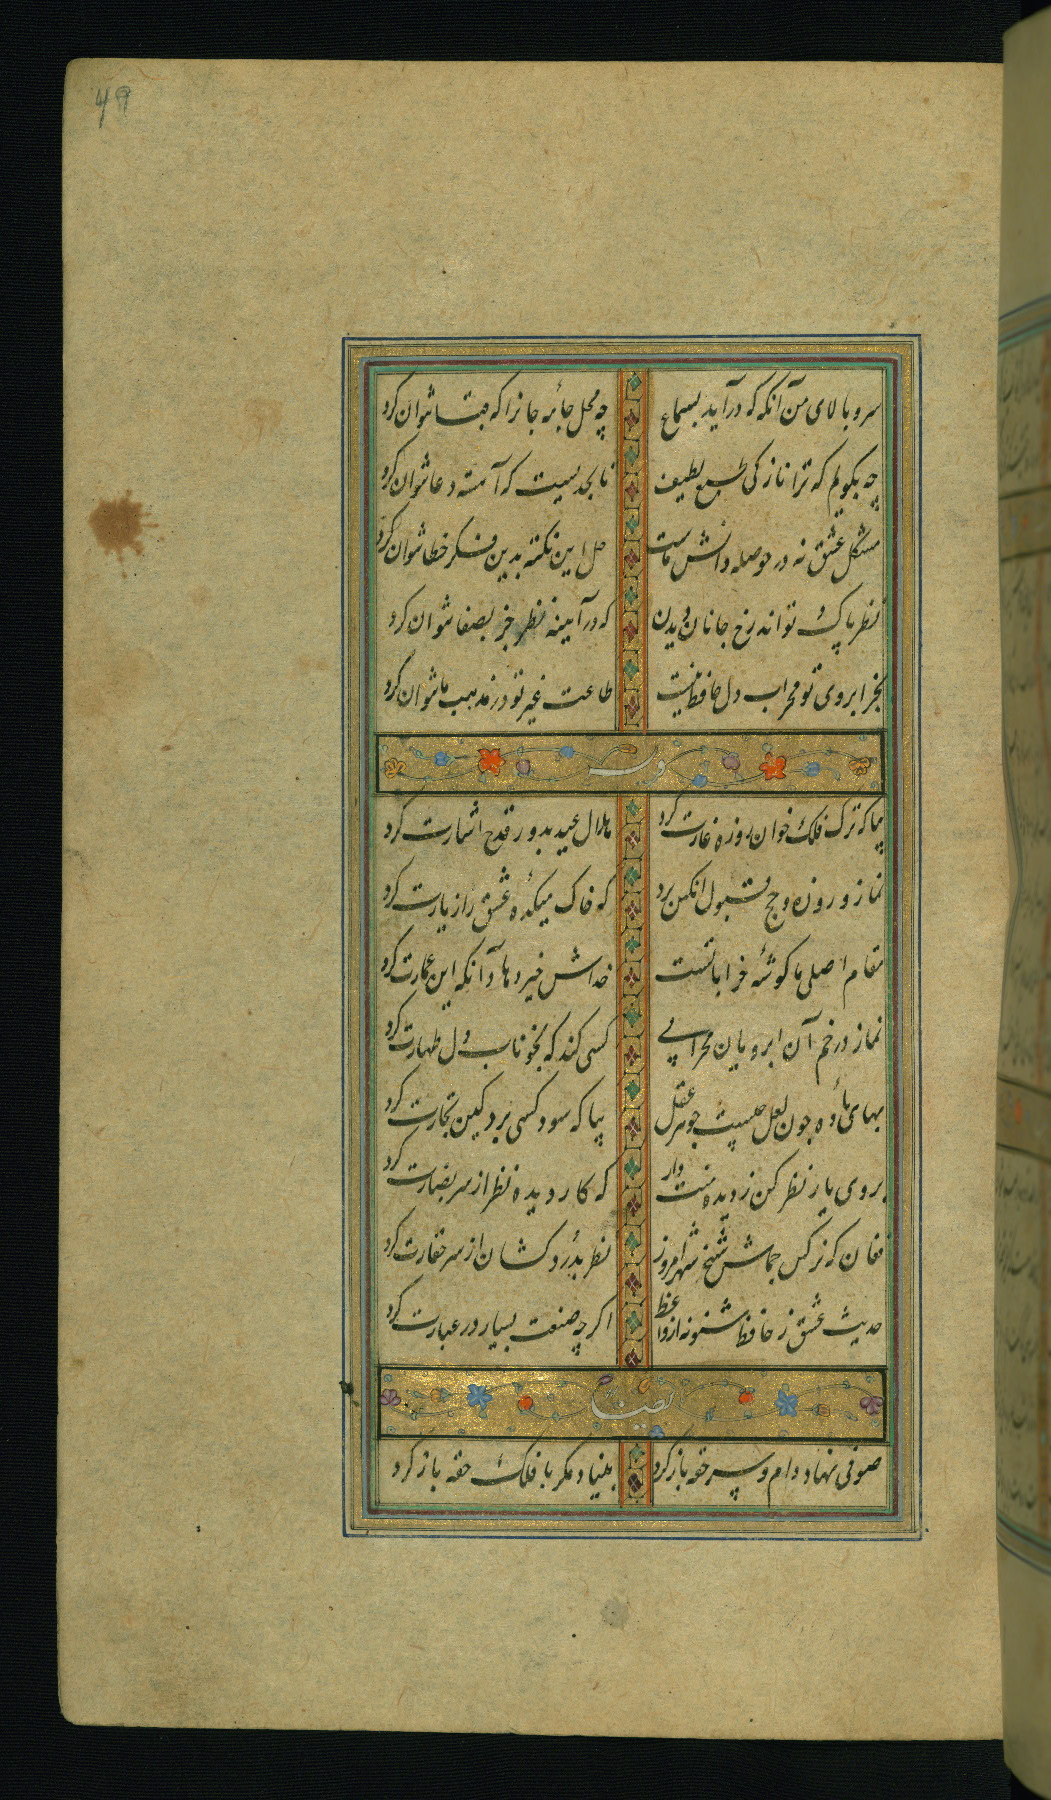 49
سرو بالای من آنکه که درآید بسماع چه محل جامۀ جانرا که قبا نتوان کرد
چه بگویم که ترا نازکی طبع لطیف تا بحدیست که آهسته دعا نتوان کرد
مشکل عشق نه در حوصله دانش ماست حل این نکته بدین فکر خطا نتوان کرد
نظر پاک تواند رخ جانان دیدن که در آیینه نظر جز بصفا نتوان کرد
بجز ابروی تو محراب دل حافظ نیست طاعت غیر تو در مذهب ما نتوان کرد
وله
بیا که ترک فلک خوان روزه غارت کرد هلال عید بدور قدح اشارت کرد
نماز و روزه و حج قبول انکس برد که خاک میکدۀ عشق را زیارت کرد
مقام اصلی ما کوشۀ خراباتست خداش خیر دهاد آنکه این عمارت کرد
نماز در خم آن ابرویان محرابی کسی کند که بخوناب دل طهارت کرد
بهای بادۀ چون لعل چیست جوهر عقل بیا که سود کسی برد کین تجارت کرد
بروی یار نظر کن ز دیده منت دار که کار دیده نظر از سر بصارت کرد
فغان که نرکس جماش شیخ شهر امروز نظر بدُرد کشان از سر حقارت کرد
حدیث عشق ز حافظ شنو نه از واعظ اکر چه صنعت بسیار در عبارت کرد
ایضا
صوفی نهاد دام و سر حقه باز کرد بنیاد مکر با فلک حقه باز کرد